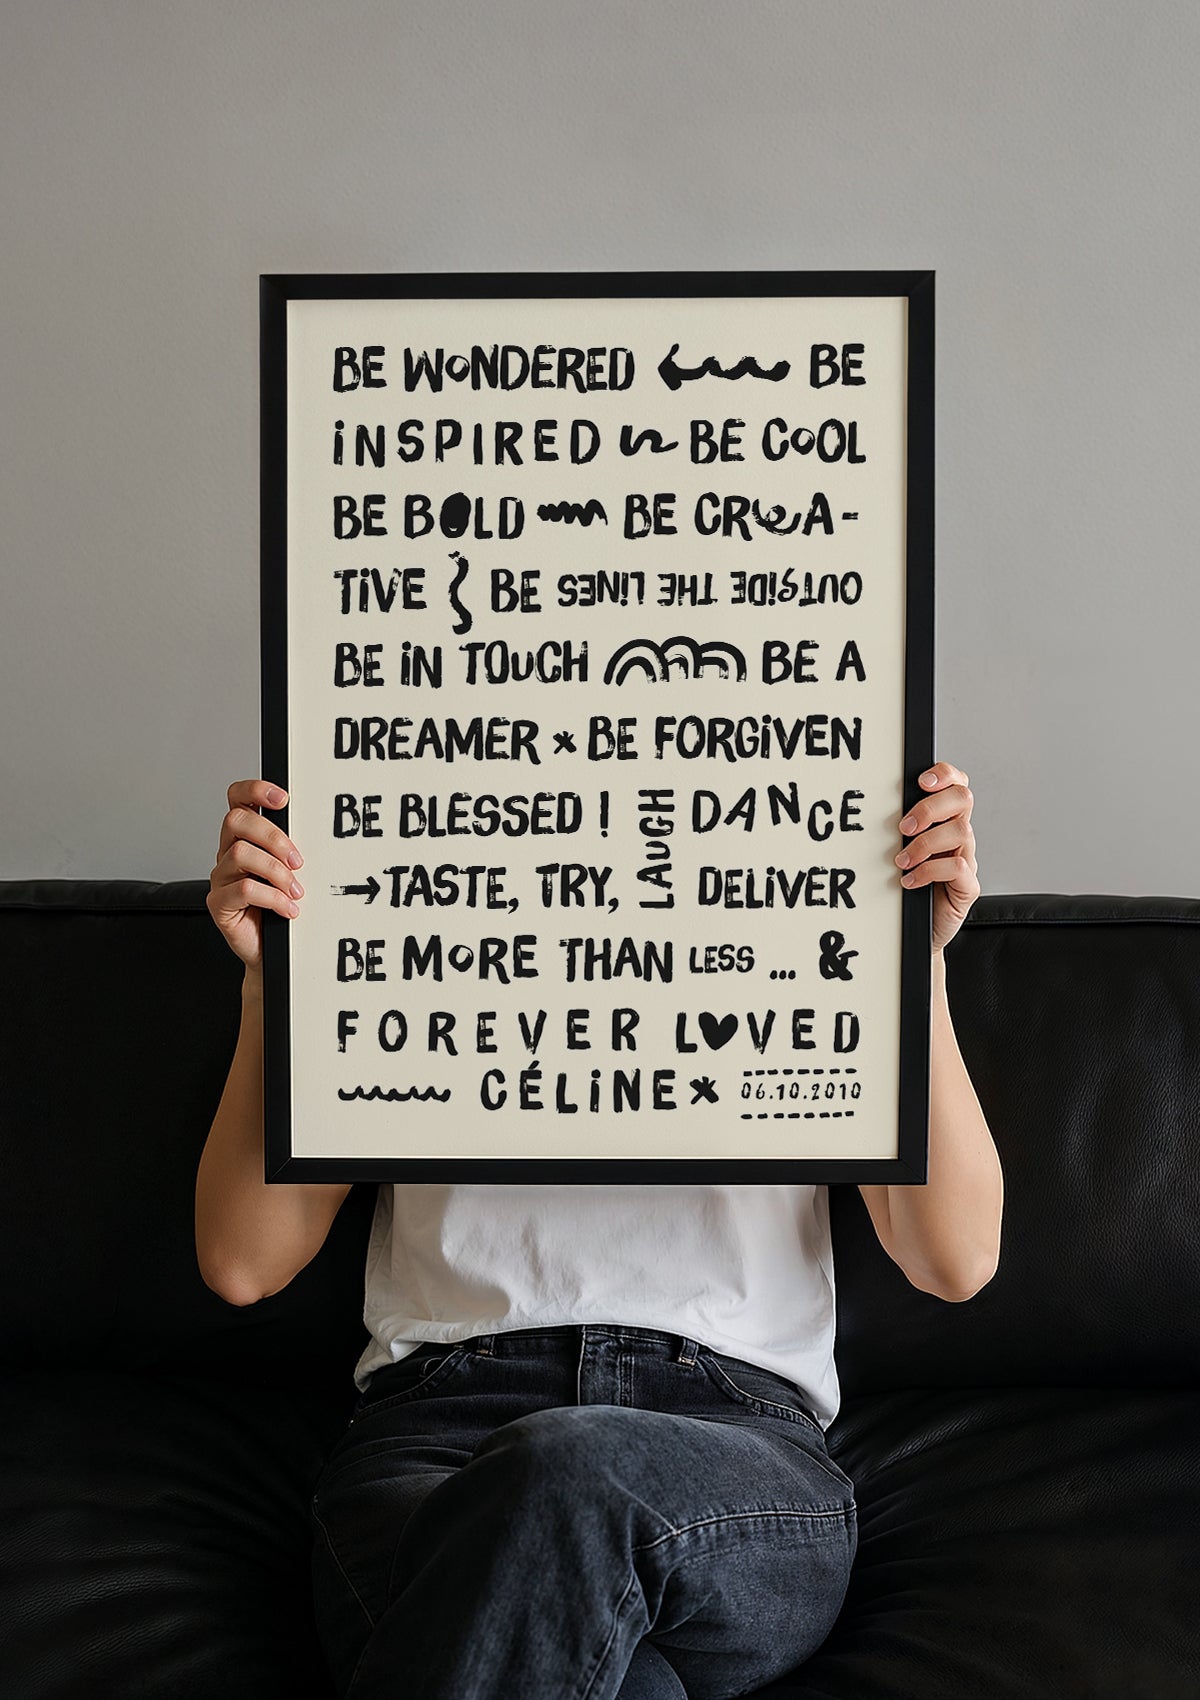 BE WONDERED BE
INSPIRED BE COOL
BE BOLD BE CREA-
TIVE BE OUTSIDE THE LINES
BE IN TOUCH BE A
DREAMER * BE FORGIVEN
BE BLESSED! LAUGH DANCE
→TASTE, TRY, DELIVER
BE MORE THAN LESS ... &
FOREVER L♥VED
CÉLINE* 06.10.2010